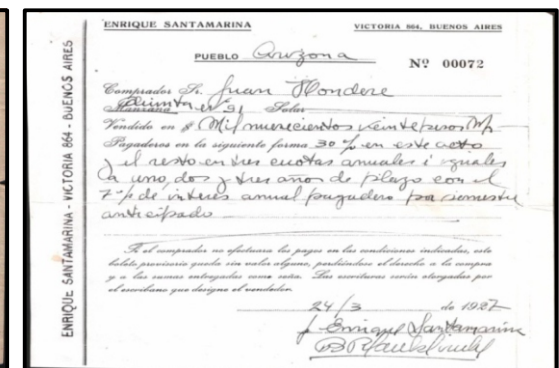 ENRIQUE SANTAMARINA
VICTORIA 864, BUENOS AIRES
PUEBLO Arizona
Nº 00072
Comprador Sr. Juan
Manzana Quinta nº 91 Solar
Vendido en $ Mil nuevecientos veinte pesos m/n
Pagaderos en la siguiente forma 30% en este acto
y el resto en tres cuotas anuales i iguales
a uno, dos y tres años de plazo con el
7% de interés anual pagadero por semestre
anticipado
Si el comprador no efectuara los pagos en las condiciones indicadas, este
boleto provisorio queda sin valor alguno, perdiéndose el derecho a la compra
y a las sumas entregadas como seña. Las escrituras serán otorgadas por
el escribano que designe el vendedor.
24/3 de 1927
p. Enrique Santamarina
ENRIQUE SANTAMARINA - VICTORIA 864 - BUENOS AIRES